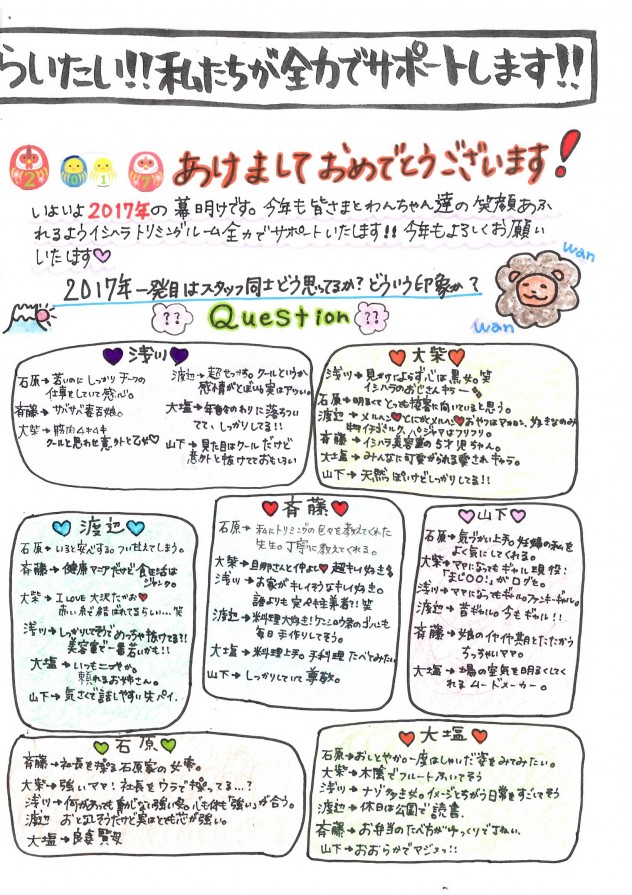 らいたい!!私たちが全力でサポートします!!
2 0 1 7 あけましておめでとうございます!
いよいよ2017年の幕明けです。今年も皆さまとわんちゃん達の笑顔あふ
れるようイシハラトリミングルーム全力でサポートいたします!!今年もよろしくお願い
いたします♡
wan
2017年一発目はスタッフ同士どう思ってるか?どういう印象か?
?? Question ??
wan
♥浅川♥
石原→若いのにしっかりチーフの
仕事をしていて感心。
斉藤→サバサバ毒舌娘。
大柴→筋肉ムキムキ
クールと思わせ意外と乙女♡
渡辺→超せっかち。クールというか
感情がとぼしい。実はアツい。
大塩→年齢のわりに落ちつい
てて、しっかりしてる!!
山下→見た目はクールだけど
意外と抜けてておもしろい
♥大柴♥
浅川→見かけによらず心は黒女。笑
イシハラのおじさんキラー
石原→明るくてとっても接客に向いていると思う。
渡辺→メルヘン♥とにかくメルヘン♥おやつはマカロン、
斉藤→イシハラ美容室の5才児ちゃん。
大塩→みんなに可愛がられる愛されキャラ。
山下→天然っぽいけどしっかりしてる!!
♥渡辺♥
石原→いると安心する。つい甘えてしまう。
斉藤→健康マニアだけど食生活は
ジャンク。
大柴→I LOVE 大沢たかお♥
赤い糸で結ばれてるらしい…笑
浅川→しっかりしてそうでめっちゃ抜けてる?!
美容室で一番若いかも!!
大塩→いつもニコやか。
頼れるお姉さん。
山下→気さくで話しやすい先パイ。
♥斉藤♥
石原→私にトリミングの色々を教えてくれた
先生。丁寧に教えてくれる。
大柴→旦那さんと仲よし♥超キレイ好き
浅川→お家がキレイそうなキレイ好き。
誰よりも実は肉食!笑
渡辺→料理大好き!ケンシロウ家のゴハンも
毎日手作りしてそう。
大塩→料理上手。手料理たべてみたい。
山下→しっかりしていて尊敬。
♡山下♡
石原→気づかい上手。妊婦の私を
よく気にしてくれる。
大柴→ママになってもギャル現役!
「まじ〇〇!」がログセ。
浅川→ママになってもギャル。ファンキーギャル。
渡辺→昔ギャル。今もギャル!!
斉藤→娘のイヤイヤ期とたたかう
ちっちゃいママ。
大塩→場の空気を明るくしてく
れるムードメーカー。
♥石原♥
斉藤→社長を操る石原家の女帝。
大柴→強いママ!社長をウラで操ってる…?
浅川→何があっても動じない強い女。心も体も「強い」が合う。
渡辺 おとなしそうだけど実はとても芯が強い。
大塩→良妻賢母
♥大塩♥
石原→おしとやか。一度はしゃいだ姿をみてみたい。
大柴→木陰でフルートふいてそう
浅川→ナゾ多き女。イメージとちがう日常をすごしてそう
渡辺→休日は公園で読書。
斉藤→お弁当のたべ方がゆっくりでていねい。
山下→おおらかでマジメっ!!